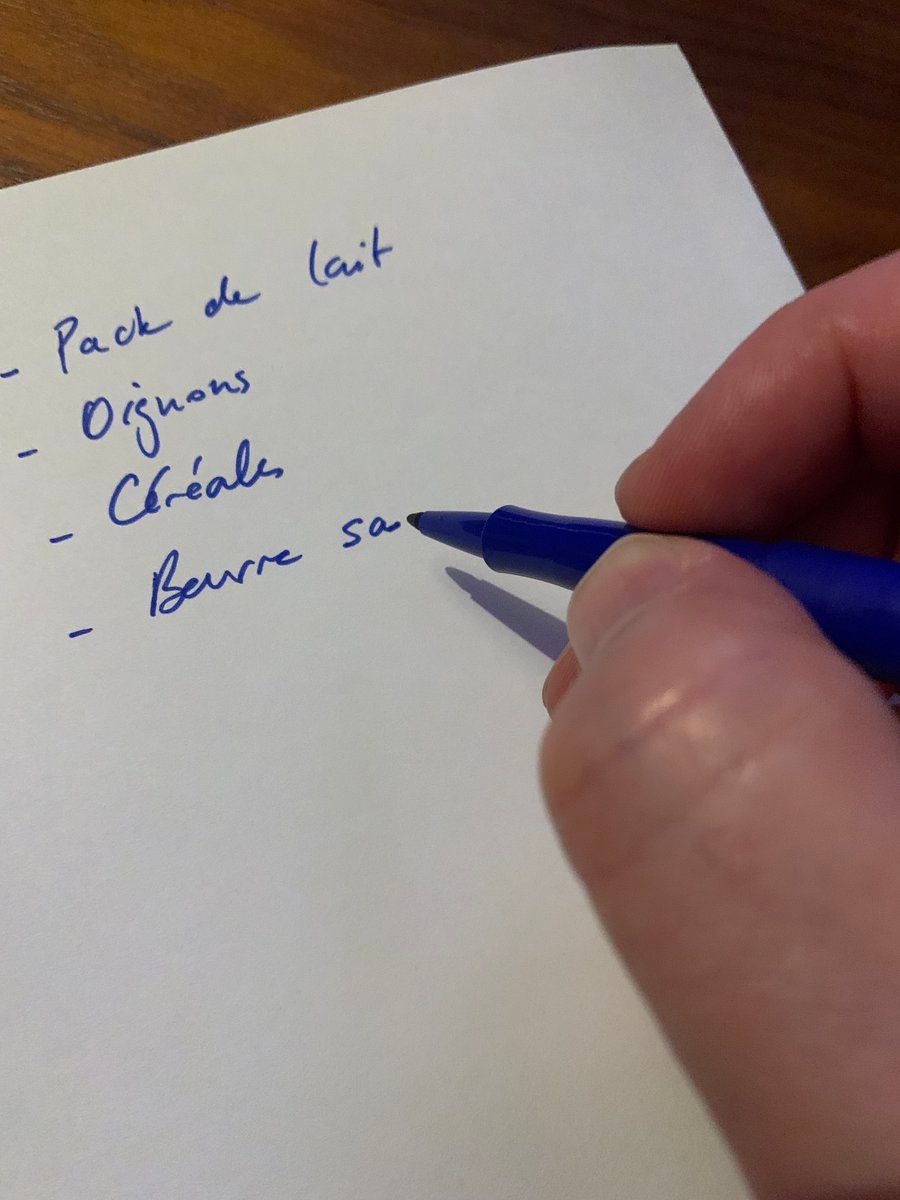 - Pack de lait
- Oignons
- Céréales
- Beurre sa